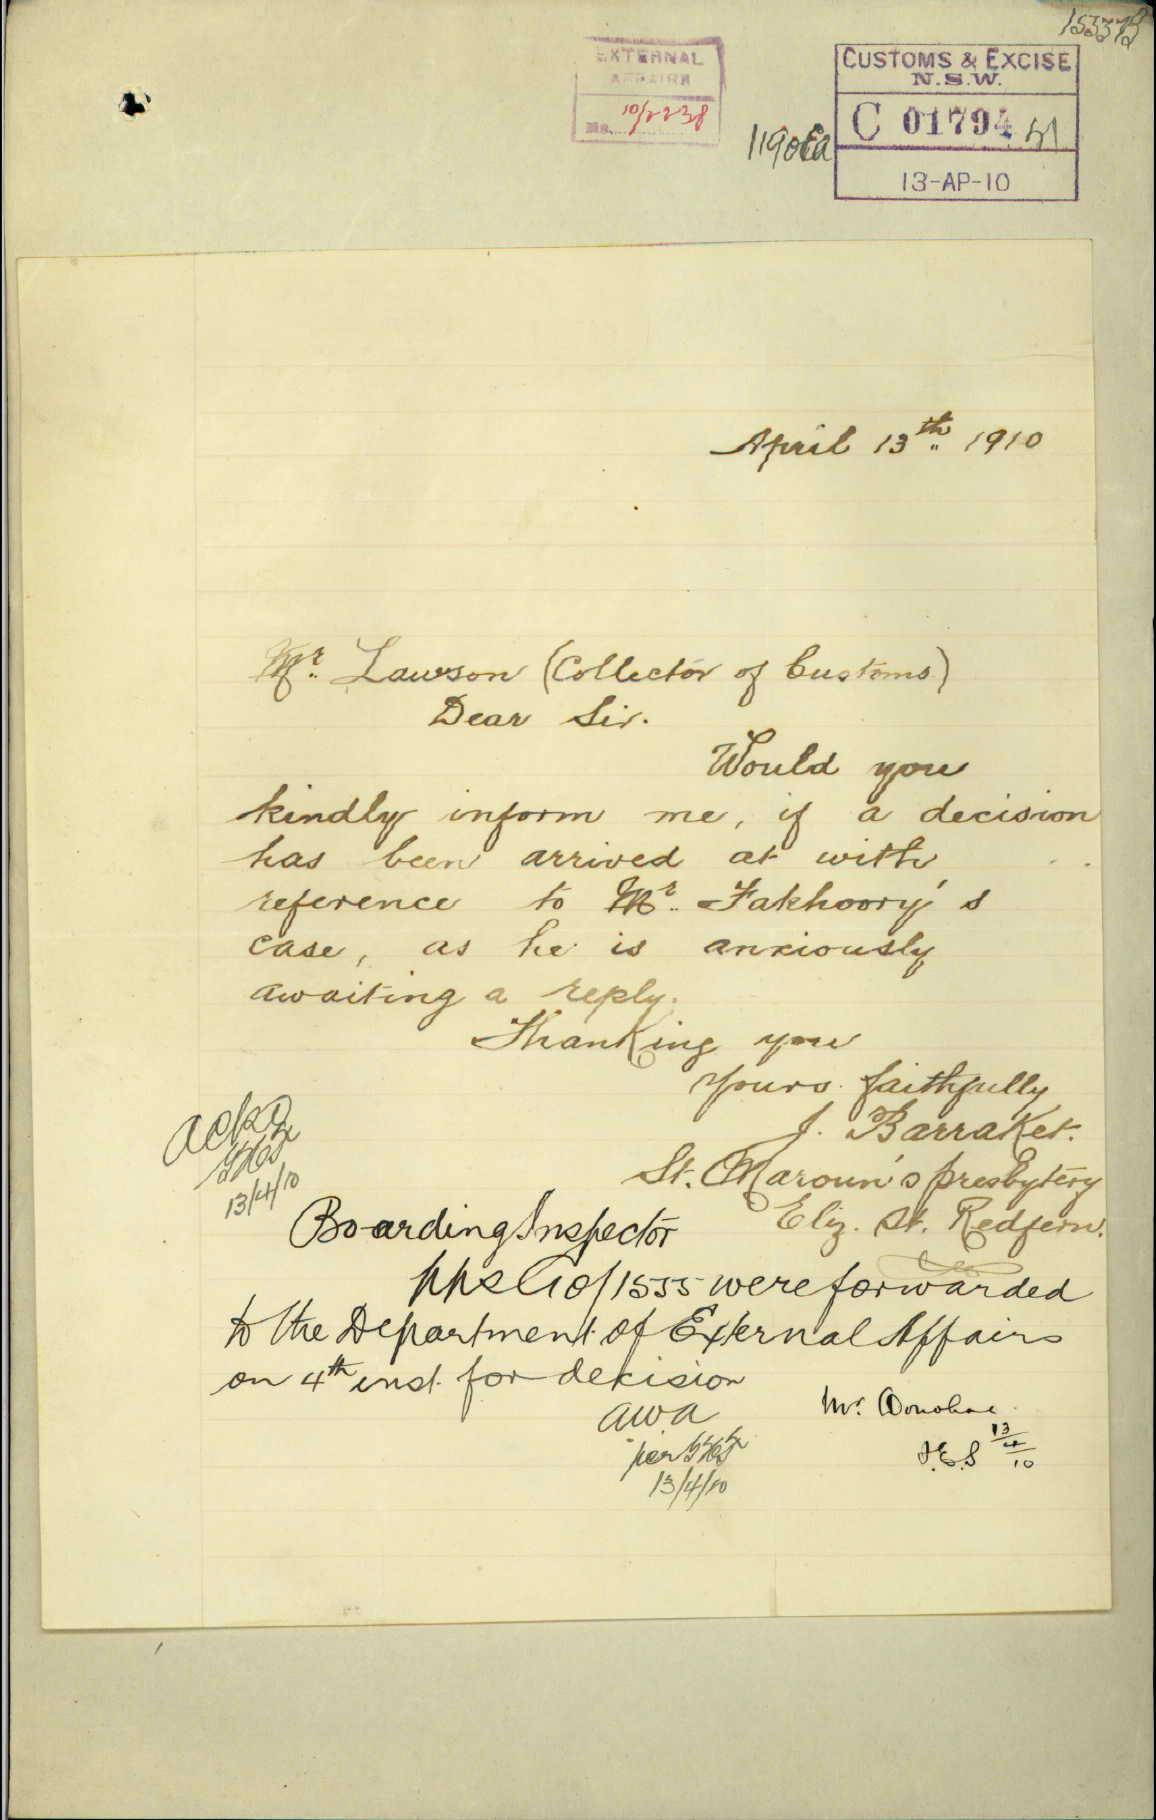 EXTERNAL
AFFAIRS
No. 10/2238
CUSTOMS & EXCISE
N.S.W.
C 01794
13-AP-10
April 13th 1910
Mr. Lawson (Collector of Customs)
Dear Sir.
Would you
kindly inform me, if a decision
has been arrived at with
reference to Mr. Fakhoory's
case, as he is anxiously
awaiting a reply.
Thanking you
Yours faithfully
J. Barraket.
St. Maroun's presbytery
Eliz. St. Redfern.
ackd
13/4/10
Boarding Inspector
pps C10/1555 were forwarded
to the Department of External Affairs
on 4th inst. for decision
AWA
per
13/4/10
Mr. Donohoe
J.E.S 13/4/10